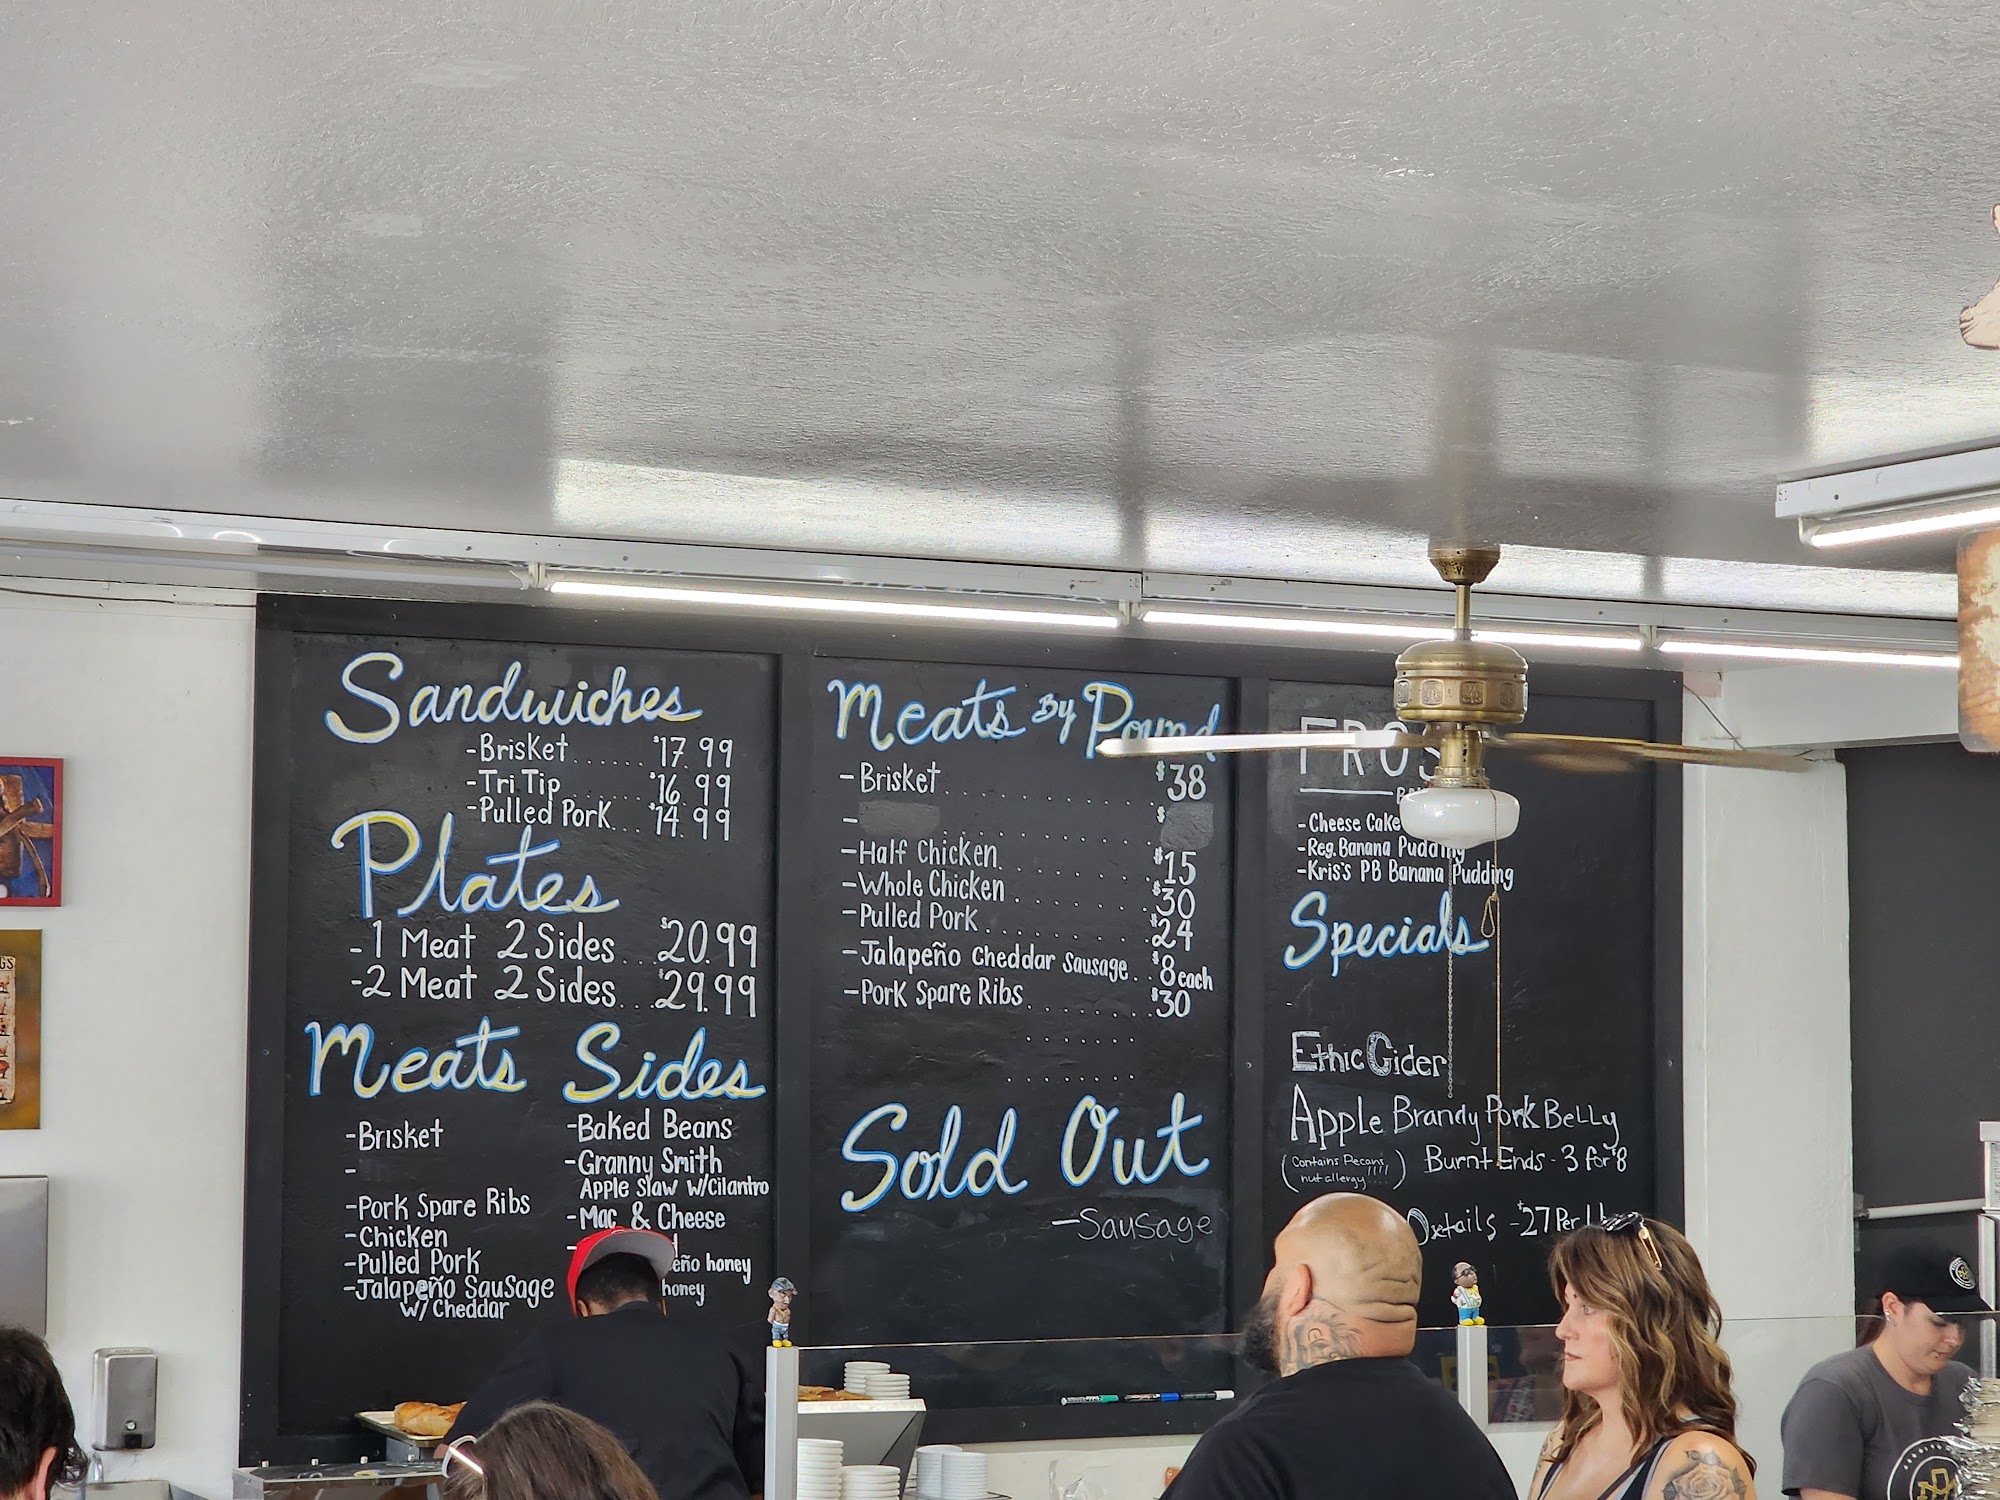 Sandwiches
-Brisket...... $17.99
-Tri Tip...... $16.99
-Pulled Pork... $14.99
Plates
-1 Meat 2 Sides... $20.99
-2 Meat 2 Sides... $29.99
Meats
-Brisket
-
-Pork Spare Ribs
-Chicken
-Pulled Pork
-Jalapeño Sausage
w/ Cheddar
Sides
-Baked Beans
-Granny Smith
Apple Slaw w/Cilantro
-Mac & Cheese
honey
honey
Meats By Pound
-Brisket............ $38
- ............ $
-Half Chicken............ $15
-Whole Chicken............ $30
-Pulled Pork............ $24
-Jalapeño Cheddar Sausage... $8 each
-Pork Spare Ribs............ $30
Sold Out
-Sausage
-Cheese Cake
-Reg. Banana Pudding
-Kris's PB Banana Pudding
Specials
-
Ethic Cider
Apple Brandy Pork Belly
Burnt Ends - 3 for $8
(Contains Pecans
nut allergy....!!!!)
Oxtails - $27 Per